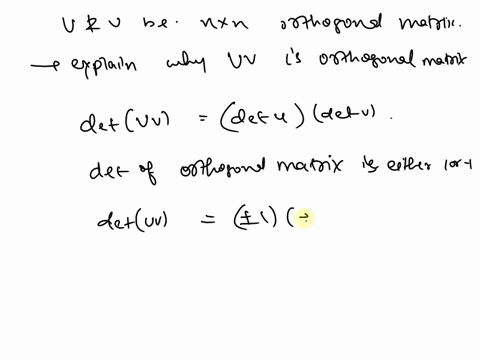 U & V be. n×n orthogonal matrix.
→ explain why UV is orthogonal matrix
det(UV) = (det u)(det v).
det of orthogonal matrix is either 1 or -1
det(UV) = (±1)(